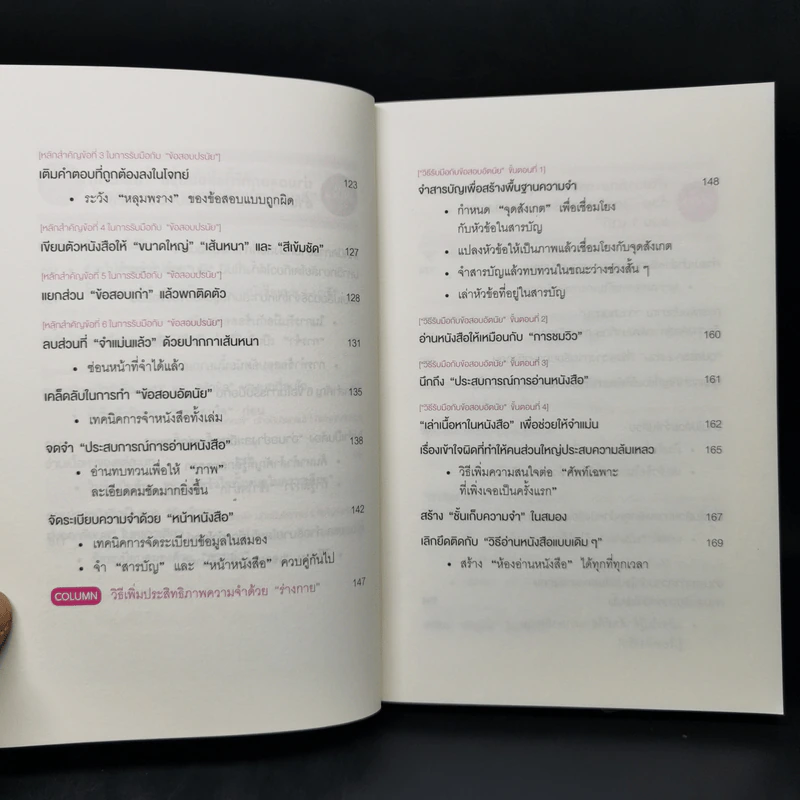 [หลักสำคัญข้อที่ 3 ในการรับมือกับ "ข้อสอบปรนัย"]
เติมคำตอบที่ถูกต้องลงในโจทย์ 123
• ระวัง "หลุมพราง" ของข้อสอบแบบถูกผิด
[หลักสำคัญข้อที่ 4 ในการรับมือกับ "ข้อสอบปรนัย"]
เขียนตัวหนังสือให้ "ขนาดใหญ่" "เส้นหนา" และ "สีเข้มชัด" 127
[หลักสำคัญข้อที่ 5 ในการรับมือกับ "ข้อสอบปรนัย"]
แยกส่วน "ข้อสอบเก่า" แล้วพกติดตัว 128
[หลักสำคัญข้อที่ 6 ในการรับมือกับ "ข้อสอบปรนัย"]
ลบส่วนที่ "จำแม่นแล้ว" ด้วยปากกาเส้นหนา 131
• ซ่อนหน้าที่จำได้แล้ว
เคล็ดลับในการทำ "ข้อสอบอัตนัย" 135
• เทคนิคการจำหนังสือทั้งเล่ม
จดจำ "ประสบการณ์การอ่านหนังสือ" 138
• อ่านทบทวนเพื่อให้ "ภาพ"
ละเอียดคมชัดมากยิ่งขึ้น
จัดระเบียบความจำด้วย "หน้าหนังสือ" 142
• เทคนิคการจัดระเบียบข้อมูลในสมอง
• จำ "สารบัญ" และ "หน้าหนังสือ" ควบคู่กันไป
COLUMN วิธีเพิ่มประสิทธิภาพความจำด้วย "ร่างกาย" 147
["วิธีรับมือกับข้อสอบอัตนัย" ขั้นตอนที่ 1]
จำสารบัญเพื่อสร้างพื้นฐานความจำ 148
• กำหนด "จุดสังเกต" เพื่อเชื่อมโยง
กับหัวข้อในสารบัญ
• แปลงหัวข้อให้เป็นภาพแล้วเชื่อมโยงกับจุดสังเกต
• จำสารบัญแล้วทบทวนในขณะว่างช่วงสั้น ๆ
• เล่าหัวข้อที่อยู่ในสารบัญ
["วิธีรับมือกับข้อสอบอัตนัย" ขั้นตอนที่ 2]
อ่านหนังสือให้เหมือนกับ "การชมวิว" 160
["วิธีรับมือกับข้อสอบอัตนัย" ขั้นตอนที่ 3]
นึกถึง "ประสบการณ์การอ่านหนังสือ" 161
["วิธีรับมือกับข้อสอบอัตนัย" ขั้นตอนที่ 4]
"เล่าเนื้อหาในหนังสือ" เพื่อช่วยให้จำแม่น 162
เรื่องเข้าใจผิดที่ทำให้คนส่วนใหญ่ประสบความล้มเหลว 165
• วิธีเพิ่มความสนใจต่อ "ศัพท์เฉพาะ
ที่เพิ่งเจอเป็นครั้งแรก"
สร้าง "ชั้นเก็บความจำ" ในสมอง 167
เลิกยึดติดกับ "วิธีอ่านหนังสือแบบเดิม ๆ" 169
• สร้าง "ห้องอ่านหนังสือ" ได้ทุกที่ทุกเวลา